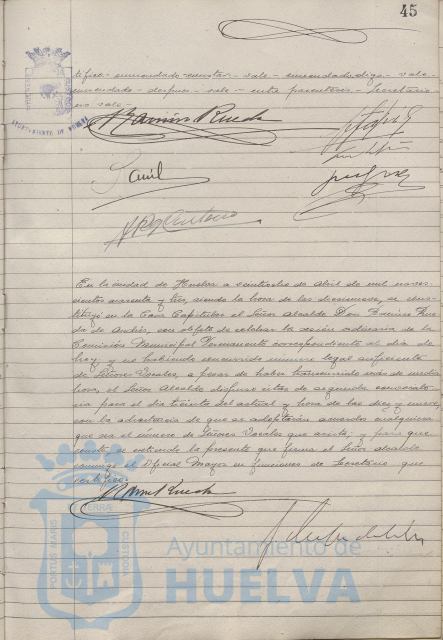 45
tifico.- enmendado - cuestas - vale - enmendado - diga - vale -
enmendado - despues - vale - entre parentesis - Secretario
no vale.-
Ramiro Rueda
AYUNTAMIENTO DE HUELVA
En la ciudad de Huelva a veintiocho de Abril de mil nove-
cientos cuarenta y tres, siendo la hora de las diecinueve, se cons-
tituyó en la Casa Capitular el Señor Alcalde Don Ramiro Rue-
da de Andrés, con objeto de celebrar la sesión ordinaria de la
Comisión Municipal Permanente correspondiente al dia de
hoy y no habiendo concurrido número legal suficiente
de Señores Vocales, a pesar de haber transcurrido más de media
hora, el Señor Alcalde dispuso citar de segunda convocato-
ria para el dia treinta del actual y hora de las diez y nueve,
con la advertencia de que se adoptarán acuerdos cualquiera
que sea el número de Señores Vocales que asista; y para que
conste, se extiende la presente que firma el Señor Alcalde
conmigo el Oficial Mayor en funciones de Secretario que
certifico.-
Ramiro Rueda
PORTUS MARIS
TERRAE
CUSTODIA
Ayuntamiento de
HUELVA